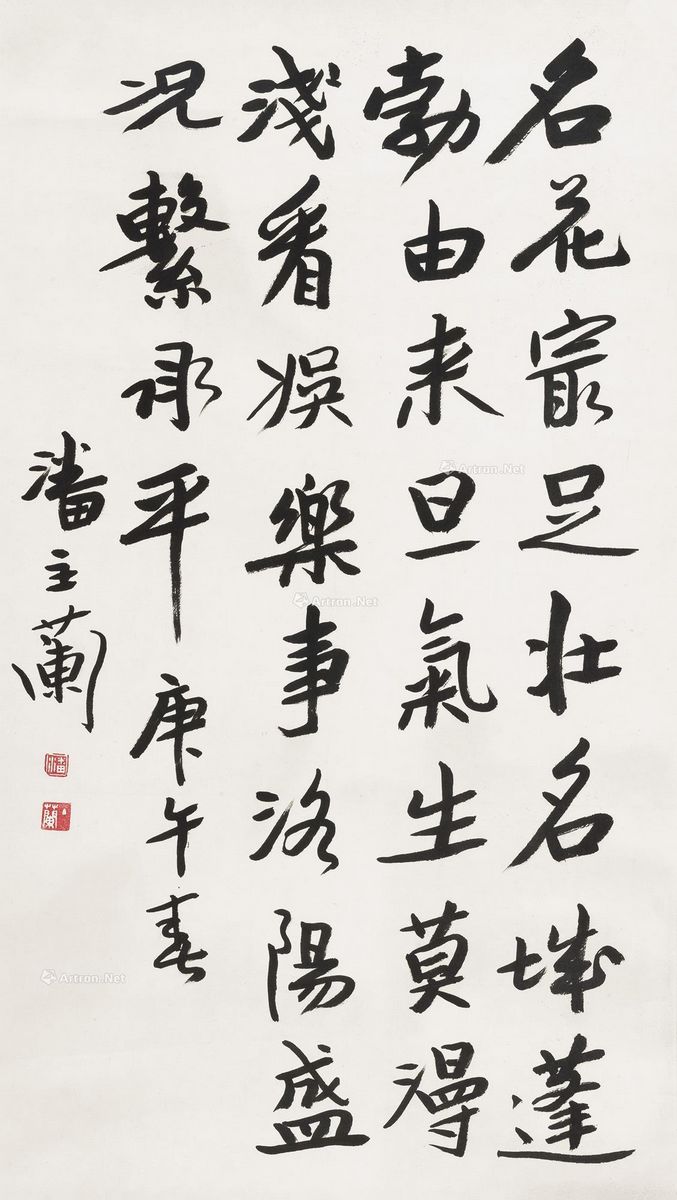 名花冣足壯名城蓬
勃由来旦氣生莫得
淺看娱樂事洛陽盛
况繫承平庚午春
潘主蘭
潘
主蘭
Artron.Net
Artron.Net
Artron.Net